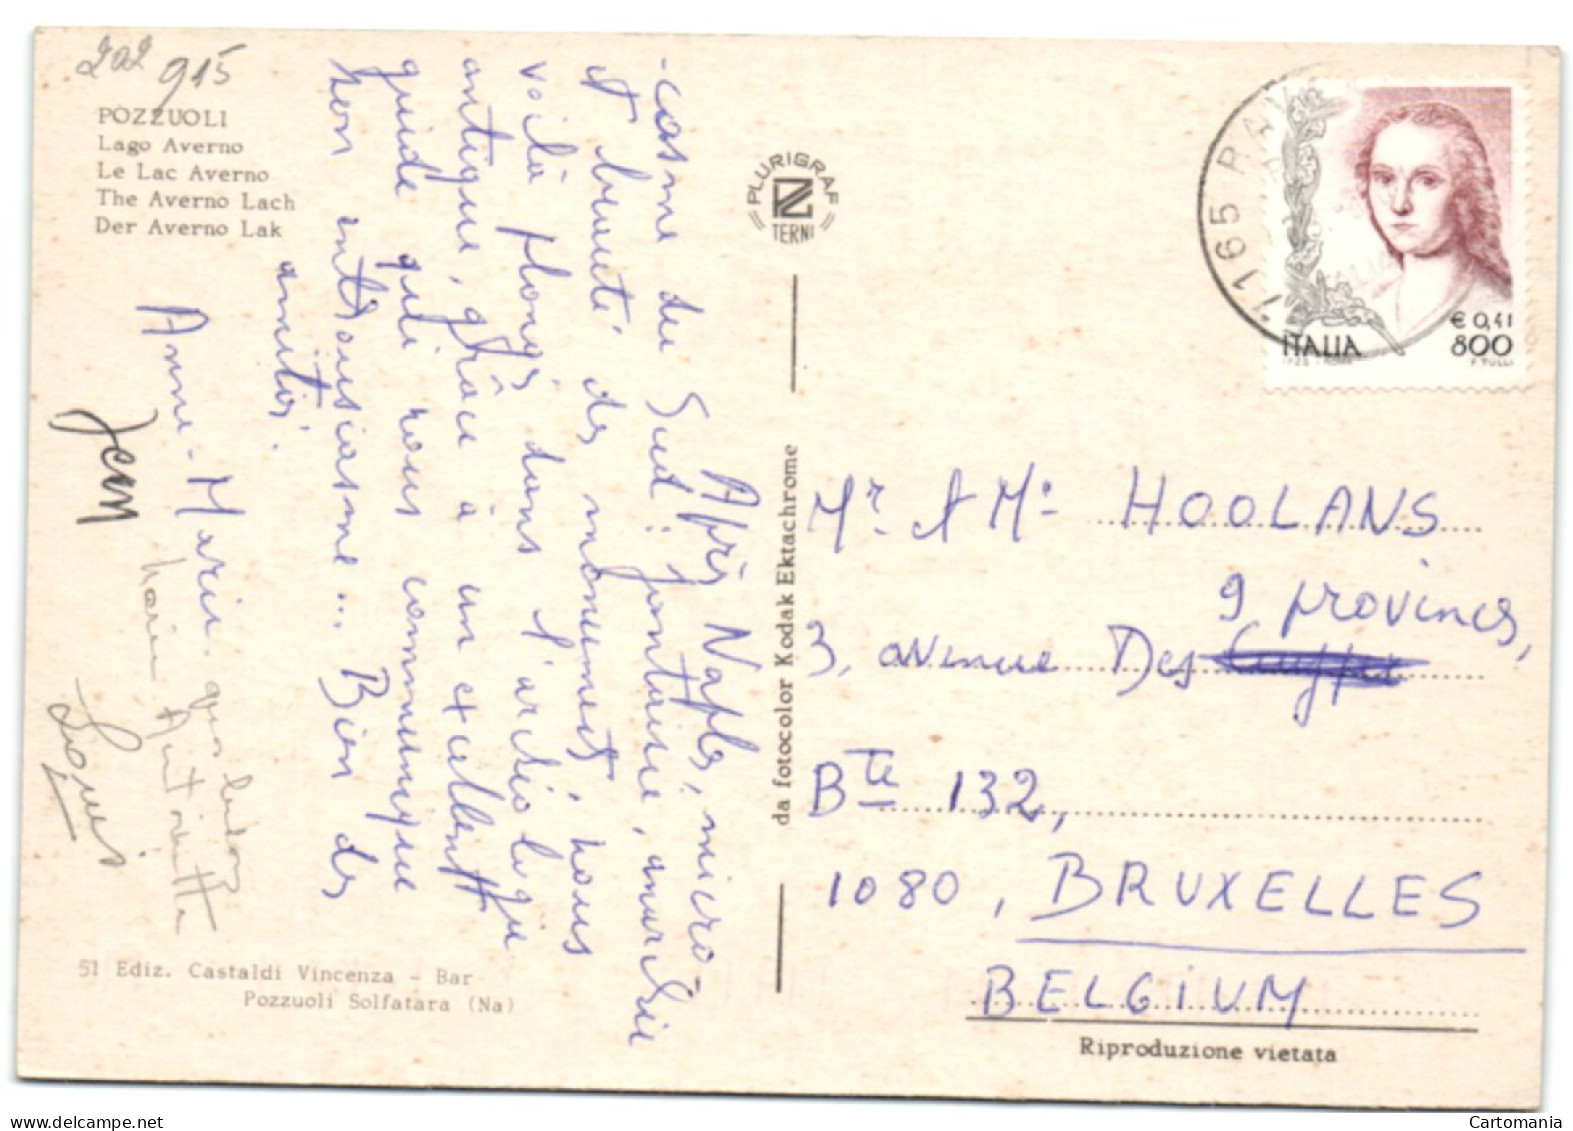 202 915
POZZUOLI
Lago Averno
Le Lac Averno
The Averno Lach
Der Averno Lak
Après Naples, micro-
-casme du Sud: jontaisie, anarchie
et beauté des monuments, nous
voilà plongés dans l'archéologie
antique, grâce à un excellent
guide qui nous communique
son enthousiasme... Bien des
amitiés.
Anne-Marie
Jean
Marie Antoinette
Louis
51 Ediz. Castaldi Vincenza - Bar
Pozzuoli Solfatara (Na)
PLURIGRAF
TERNI
da fotocolor Kodak Ektachrome
7165 RAV
ITALIA
€ 0,41
800
F. TULLI
Mr et Me HOOLANS
9 provinces,
3, avenue Des
Bte 132,
1080, BRUXELLES
BELGIUM
Riproduzione vietata
www.delcampe.net
Cartomania